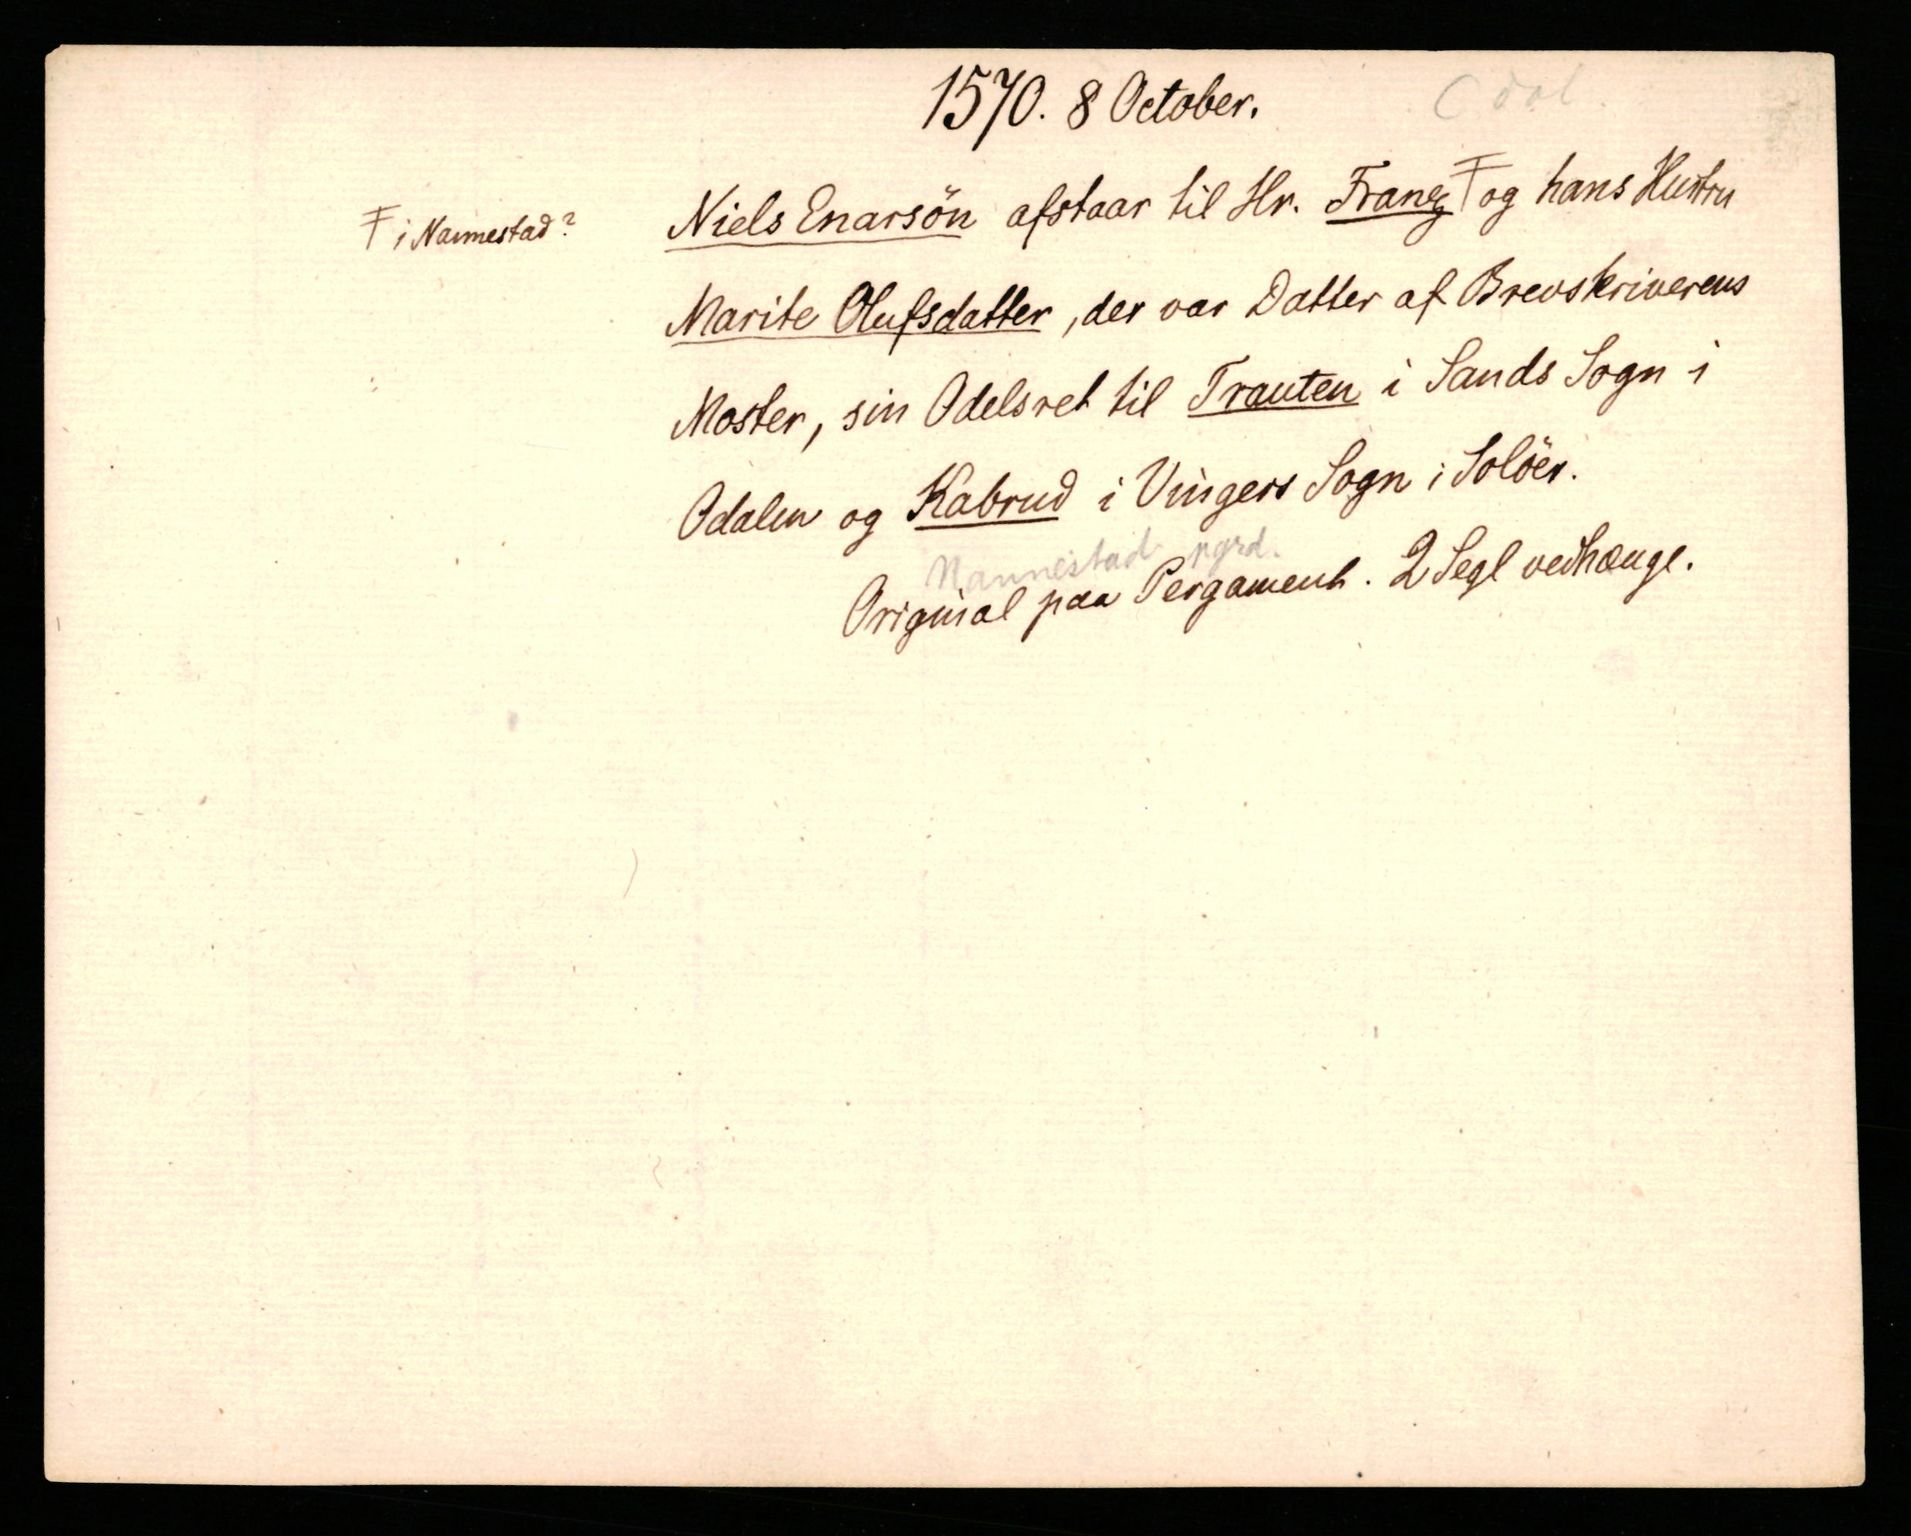 1570. 8 October.
Niels Enarsön afstaar til Hr. Franz Ŧ og hans Hustru
Ŧ i Nannestad?
Marite Olufsdatter, der var Datter af Brevskriverens
Moster, sin Odelsret til Trauten i Sands Sogn i
Odalen og Kabrud i Vingers Sogn i Solöer.
Nannestad pgrd.
Original paa Pergament. 2 Segl vedhænge.